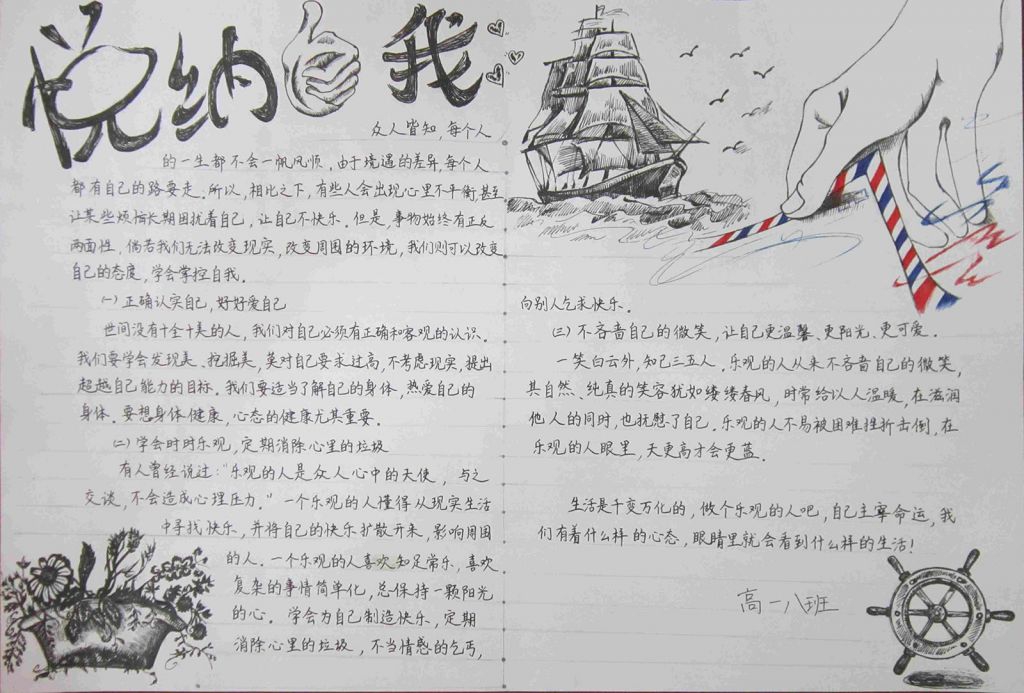 悦纳自我
众人皆知，每个人
的一生都不会一帆风顺，由于境遇的差异，每个人
都有自己的路要走．所以，相比之下，有些人会出现心里不平衡，甚至
让某些烦恼长期困扰着自己，让自己不快乐．但是，事物始终有正反
两面性，倘若我们无法改变现实，改变周围的环境，我们则可以改变
自己的态度，学会掌控自我．
(一)正确认实自己，好好爱自己
世间没有十全十美的人，我们对自己必须有正确和客观的认识．
我们要学会发现美、挖掘美，莫对自己要求过高，不考虑现实，提出
超越自己能力的目标．我们要适当了解自己的身体，热爱自己的
身体．要想身体健康，心态的健康尤其重要．
(二)学会时时乐观，定期消除心里的垃圾
有人曾经说过："乐观的人是众人心中的天使，与之
交谈，不会造成心理压力．"一个乐观的人懂得从现实生活
中寻找快乐，并将自己的快乐扩散开来，影响周围
的人．一个乐观的人喜欢知足常乐，喜欢
复杂的事情简单化，总保持一颗阳光
的心．学会为自己制造快乐，定期
消除心里的垃圾，不当情感的乞丐，
向别人乞求快乐．
(三)不吝啬自己的微笑，让自己更温馨、更阳光、更可爱．
一笑白云外，知己三五人．乐观的人从来不吝啬自己的微笑，
其自然、纯真的笑容犹如缕缕春风，时常给以人温暖，在滋润
他人的同时，也抚慰了自己．乐观的人不易被困难挫折击倒，在
乐观的人眼里，天更高才会更蓝．
生活是千变万化的，做个乐观的人吧，自己主宰命运，我
们有着什么样的心态，眼睛里就会看到什么样的生活！
高一八班